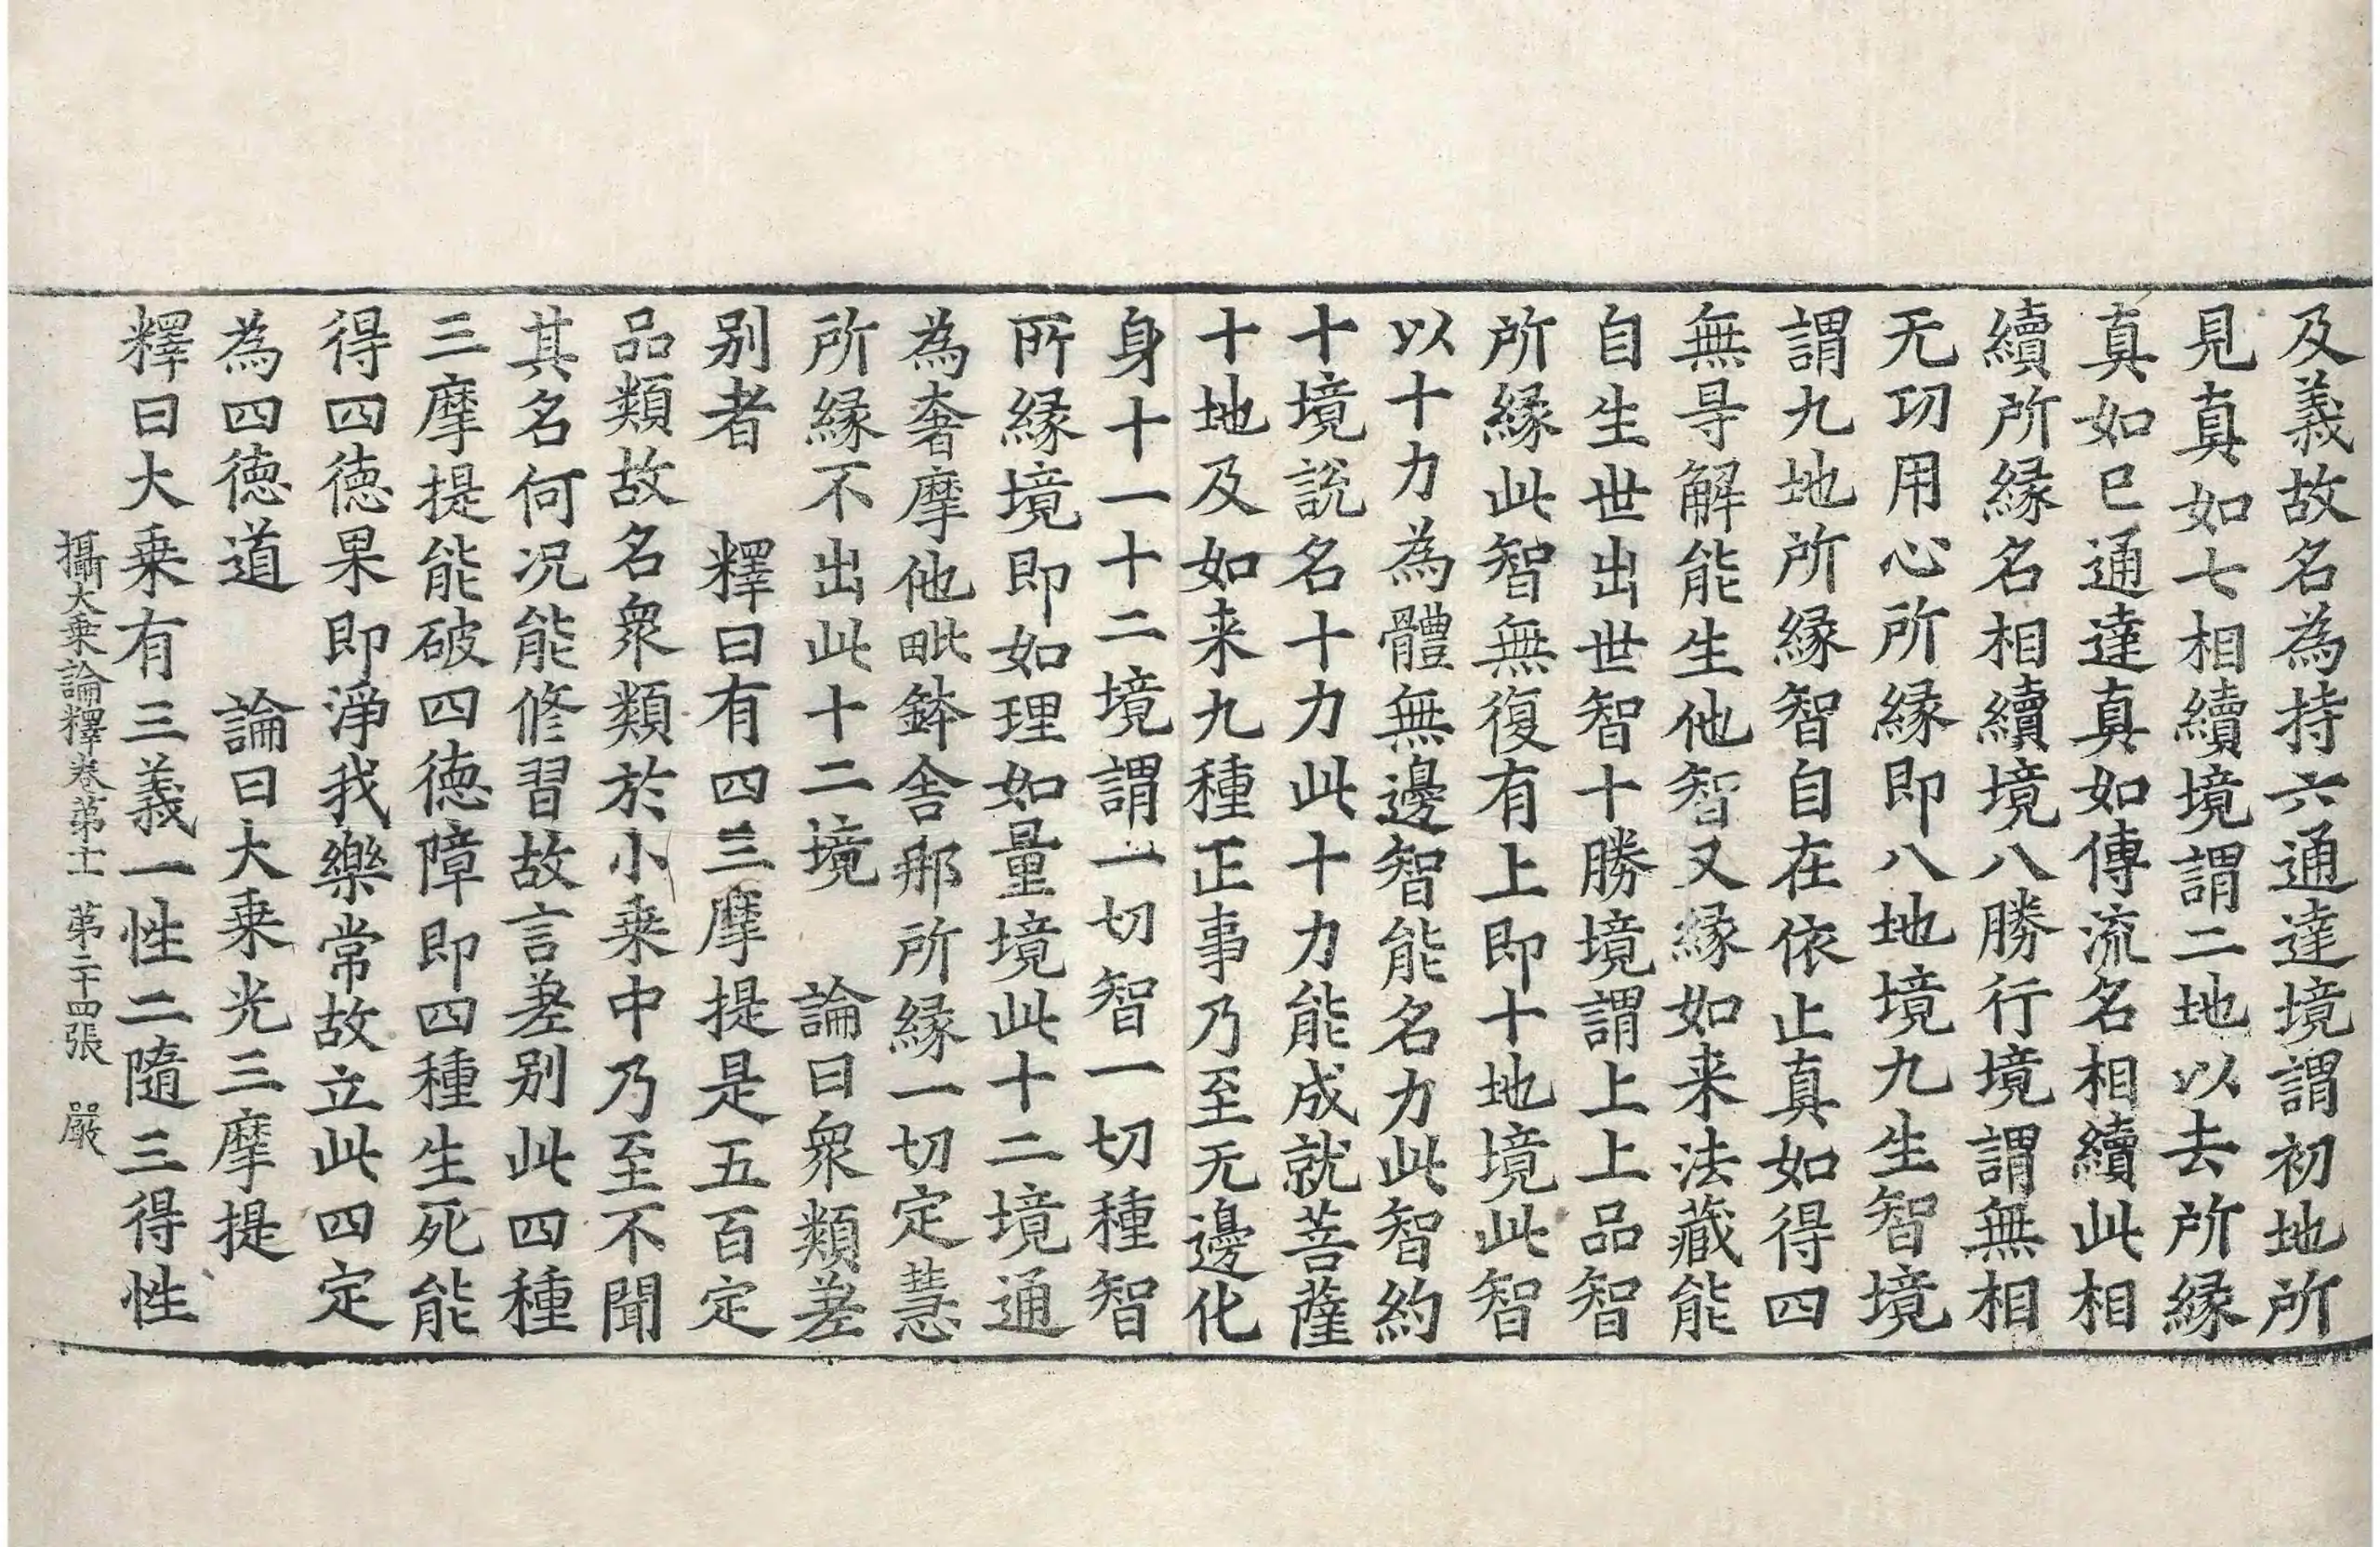 及義故名為持六通達境謂初地所
見真如七相續境謂二地以去所縁
真如已通達真如傳流名相續此相
續所縁名相續境八勝行境謂無相
无功用心所縁即八地境九生智境
謂九地所縁智自在依止真如得四
無㝵解能生他智又縁如来法藏能
自生世出世智十勝境謂上上品智
所縁此智無復有上即十地境此智
以十力為體無邊智能名力此智約
十境説名十力此十力能成就菩薩
十地及如来九種正事乃至无邊化
身十一十二境謂一切智一切種智
所縁境即如理如量境此十二境通
為奢摩他毗鉢舎那所縁一切定慧
所縁不出此十二境　論曰衆類差
别者　釋曰有四三摩提是五百定
品類故名衆類於小乗中乃至不聞
其名何况能修習故言差别此四種
三摩提能破四徳障即四種生死能
得四徳果即淨我樂常故立此四定
為四徳道　論曰大乗光三摩提
釋曰大乗有三義一性二隨三得性
攝大乗論釋卷第十一　第二十四張　嚴